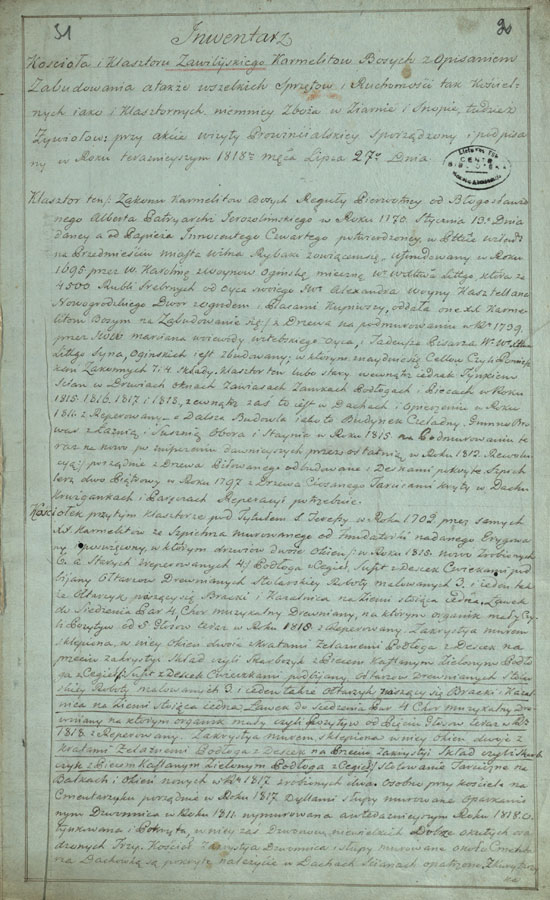 51 30
Inwentarz
Kościoła i Klasztoru Zawilijskiego Karmelitow Bosych z Opisaniem
Zabudowania a także wszelkich Sprzętow i Ruchomości tak Kościel
nych iako i Klasztornych niemniey Zboża w Ziarnie i Snopie, tudzież
Żywiołow przy akcie wizyty Prowincialskiey Sporządzony i podpisa
ny w Roku teraznieyszym 1818 Mca Lipca 27 Dnia
Klasztor ten Zakonu Karmelitow Bosych Reguły Pierwotney od Błogosławio
nego Alberta Patryarchi Ierozolimskiego w Roku Stycznia Dnia
Daney a od Papieża Innocentego Czwartego potwierdzoney, w
na Przedmieściu miasta Wilna Rybaki zowiącemsię, Ufundowany w Roku
1695 przez W. Karolinę z Woynow Oginską która za
4500 Rubli Srebrnych od Oyca swoiego Alexandra Woyny Kasztellana
Nowogrodzkiego Dwor z ogrodem i Placami Kupiwszy, oddała one XX. Karme
litom Bosym na Zabudowanie się z Drzewa na podmurowaniu w 1739
przez Marciana Woiewody Witebskiego Oyca, i Tadeusza Pisarza
Littgo Syna, Oginskich iest zbudowany; w którym znayduie się Cellow Czyli Pomiesz
kan Zakonnych 7. Składy. Klasztor ten lubo stary wewnątrz iednak Tynkiem
Ścian w Drzwiach oknach Zawiasach Zamkach Podłogach i Piecach w Roku
1815. 1816. 1817 i 1818, zewnątrz zaś to iest w Dachach i w Roku
1811. z Reperowany. Dalsza Budowla iako to Budynek Czeladny, Gumno Bro
war z Łaznią i Susznią Obora i Staynie w Roku 1815. na Podmurowaniu te
raz na nowo po w Roku 1812. Rewolu
cyą porządnie z Drzewa Pilowanego odbudowane i Deskami pokryte Szpich
lerz dwo Piętrowy w Roku 1797 z Drzewa Ciesanego Tarcicami kryty w Dachu
i Reperacyi potrzebuie.
Kościołek przy tym Klasztorze pod Tytułem S. Teressy w Roku 1702 przez samych
XX. Karmelitow ze Szpichrza murowanego od nadanego Erygowa
ny i poswięcony, w którym drzwiow dwoie Okien w Roku 1815. nowo zrobionych
6. a Starych zreperowanych 4. Podłoga z Cegieł, Sufit z Desek Cwiekami pod
bijany Ołtarzow Drewnianych Stolarskiey Roboty malowanych 3. i ieden tak
że Ołtarzyk noszący się Bracki i Kazalnica na Ziemi stoiąca iedna. Ławek
do Siedzenia Par 4, Chor muzykalny Drewniany, na którym organik mały Czy
li Pozytyw od 5. Głosow teraz w Roku 1818 z Reperowany. Zakrystya murem
sklepiona, w niey Okien dwoie z Kratami Żelaznemi Podłoga z Desek na
przeciw Zakrystyi Skład czyli Skarbczyk z Piecem Kaflanym Zielonym Podło
ga z Cegieł Sufit z Desek Cwieczkami podbijany Ołtarzow Drewnianych Stolar
skiey Roboty malowanych 3. i ieden także Ołtarzyk noszący się Bracki i Kazal
nica na Ziemi stoiąca iedna, Ławek do Siedzenia Par 4 Chor muzykalny Dre
wniany na którym organik mały czyli Pozytyw od Pięciu Głosow teraz w
1818. z Reperowany. Zakrystya murem sklepiona w niey Okien dwoie z
Kratami Żelaznemi Podłoga z Desek na Przeciw Zakrystyi Skład czyli Skarb
czyk z Piecem Kaflanym Zielonym Podłoga z Cegieł, na
Belkach i Okien nowych w 1817 zrobionych dwa. Osobno przy kościele na
Cmentarzyku porządne w Roku 1817 Dyllami słupy murowane oparkanio
nym Dzwonnica w Roku 1811. wymurowana a w teraznieyszym Roku 1818.
tynkowana i Pokryta, w niey zaś Dzwonow niewielkich Dobrze okutych osa
dzonych Trzy. Kościoł Zakrystya Dzwonnica i słupy murowane około Cmenta
rza Dachowką są pokryte należycie w Dachach Scianach opatrzone.
na